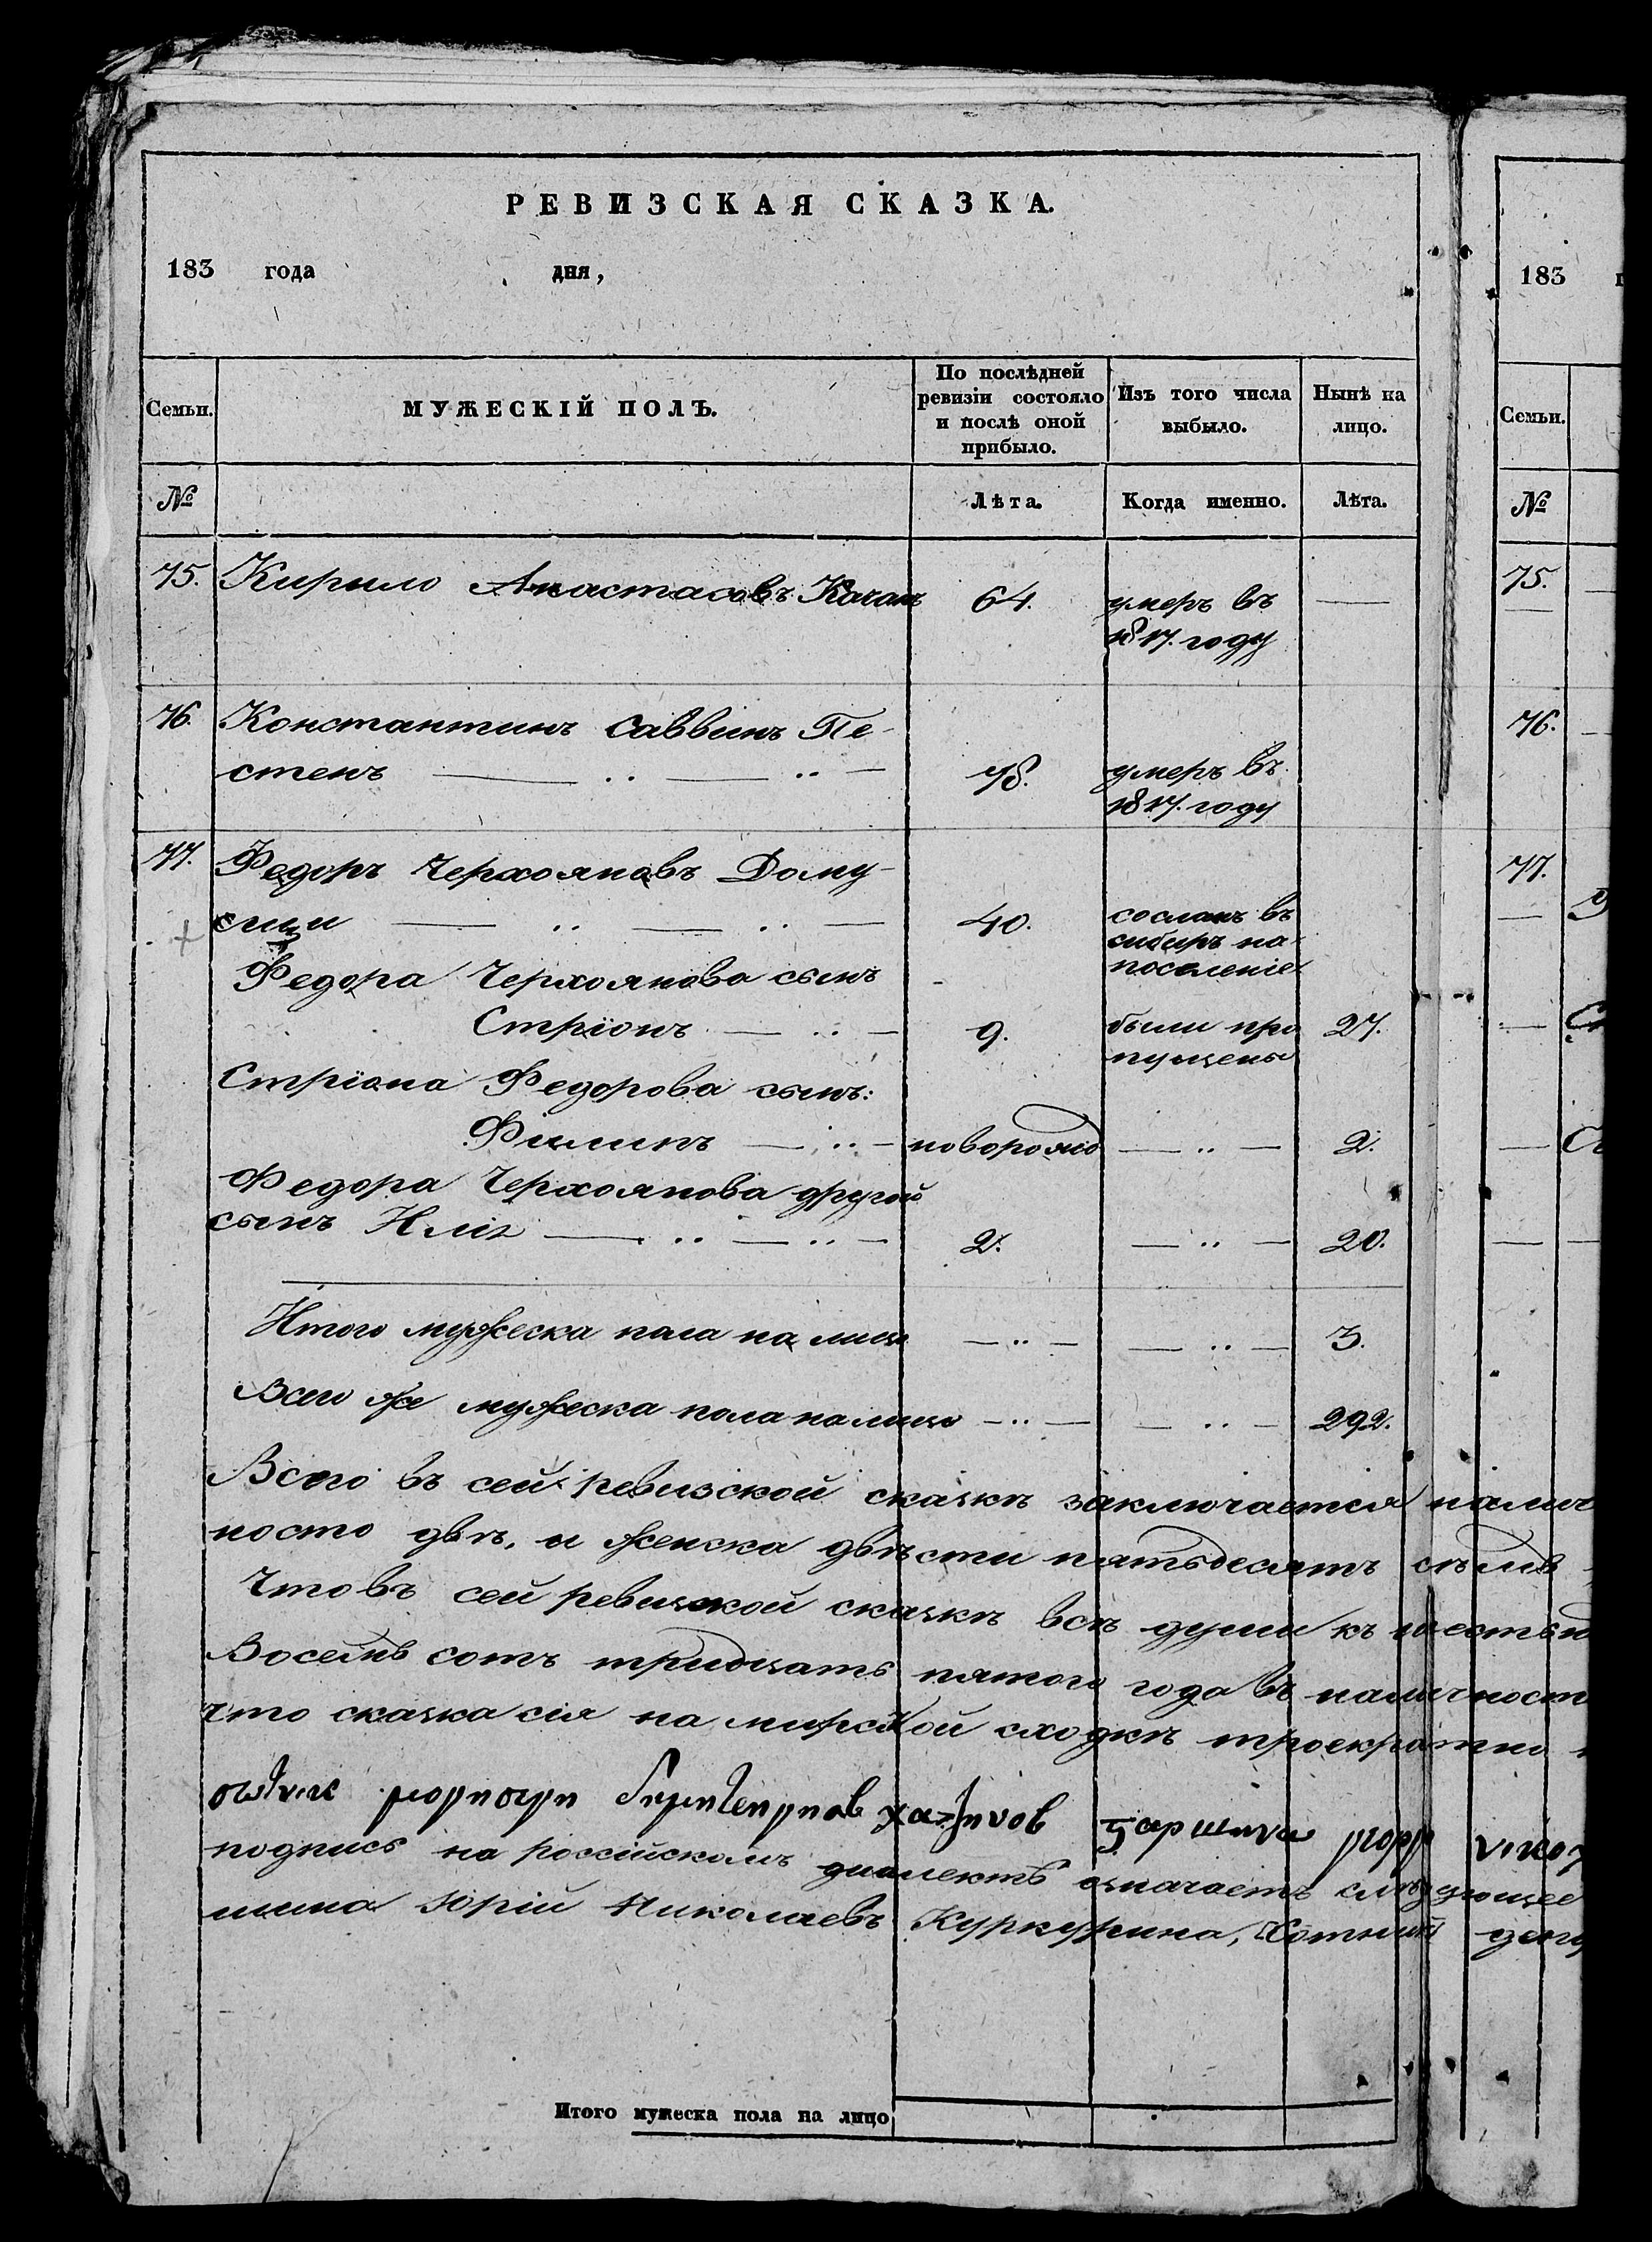 РЕВИЗСКАЯ СКАЗКА.
183 года дня,
183
Семьи. МУЖЕСКІЙ ПОЛЪ. По послѣдней ревизіи состояло и послѣ оной прибыло. Изъ того числа выбыло. Нынѣ на лицо. Семьи.
№ Лѣта. Когда именно. Лѣта. №
75. Кирило Анастасовъ Кочан 64. умеръ въ — 75.
1817. году
76. Константинъ Саввинъ Пе- 76.
стенъ 78. умеръ въ
1817. году
77. Федоръ Черхояновъ Дому- 77.
сгци 40. сосланъ въ
сибиръ на
поселеніе
Федора Черхоянова сынъ
Стріонъ 9. были про 27.
пущены
Стріона Федорова сынъ:
Филипъ новорожд 2.
Федора Черхоянова другой
сынъ Иліе 2. 20.
Итого мужеска пола на лицо 3.
Всего же мужеска пола налицо 292.
Всего въ сей ревизской сказкѣ заключается налич
носто двѣ, и женска двѣсти пятьдесятъ семь
Что въ сей ревизской сказкѣ всѣ души къ шестьна
Восемь сотъ тридцать пятого года въ наличност
что сказка сія на мирской сходкѣ троекратно
подпись на россійскомъ диалектѣ означаетъ слѣдующее
шина Юрій Николаевъ Куркурина, Сотный
Итого мужеска пола на лицо